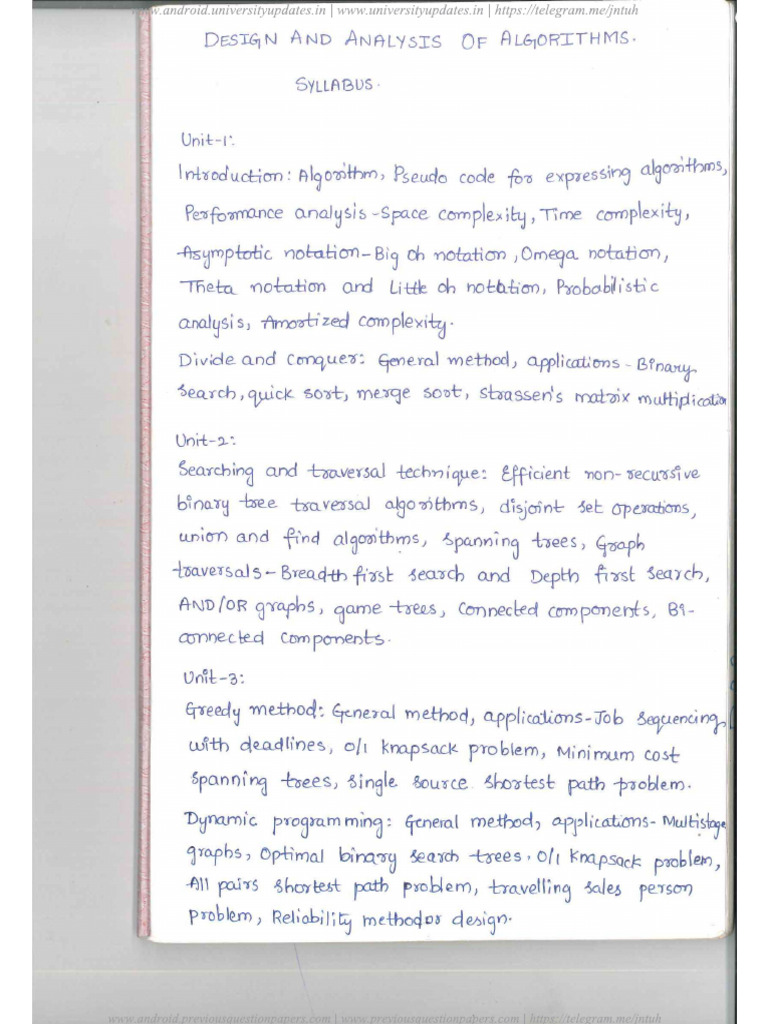 www.android.universityupdates.in | www.universityupdates.in | https://telegram.me/jntuh
DESIGN AND ANALYSIS OF ALGORITHMS.
SYLLABUS.
Unit-1:
Introduction: Algorithm, Pseudo code for expressing algorithms,
Performance analysis - Space complexity, Time complexity,
Asymptotic notation - Big oh notation, Omega notation,
Theta notation and Little oh notation, Probabilistic
analysis, Amortized complexity.
Divide and conquer: General method, applications - Binary
search, quick sort, merge sort, strassen's matrix multiplication
Unit-2:
Searching and traversal technique: Efficient non-recursive
binary tree traversal algorithms, disjoint set operations,
union and find algorithms, spanning trees, Graph
traversals - Breadth first search and Depth first search,
AND/OR graphs, game trees, connected components, Bi-
connected components.
Unit-3:
Greedy method: General method, applications - Job sequencing
with deadlines, 0/1 knapsack problem, Minimum cost
spanning trees, single source shortest path problem.
Dynamic programming: General method, applications - Multistage
graphs, Optimal binary search trees, 0/1 knapsack problem,
All pairs shortest path problem, travelling sales person
problem, Reliability method or design.
www.android.previousquestionpapers.com | www.previousquestionpapers.com | https://telegram.me/jntuh